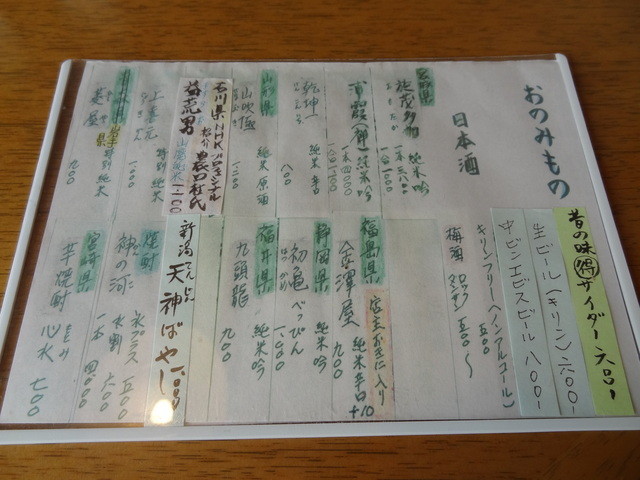 おのみもの
日本酒
宮城県
純米吟
一本
浦霞(禅)純米吟
一本 四〇〇〇
乾坤一
純米 辛口
八〇〇
山形県
山吹極
純米 原酒
石川県
NHKプロフェッショナル
紹介 農口杜氏
益荒男
山廃純米
上喜元
特別 純米
一、〇〇〇
特別 純米
九〇〇
昔の味 得 サイダー 六〇〇-
生ビール(キリン)六〇〇-
中ビンエビスビール 八〇〇-
キリンフリー(ノンアルコール)
五〇〇
梅酒
五〇〇〜
福島県
店主お気に入り
金澤屋
純米 辛口+10
九〇〇
静岡県
純米吟
初亀
べっぴん
一、〇〇〇
福井県
純米吟
九頭龍
九〇〇
新潟
天神ばやし
一、〇〇〇
焼酎
神の河
水割
六〇〇
一本
四〇〇〇
宮崎県
芋焼酎
心水
七〇〇